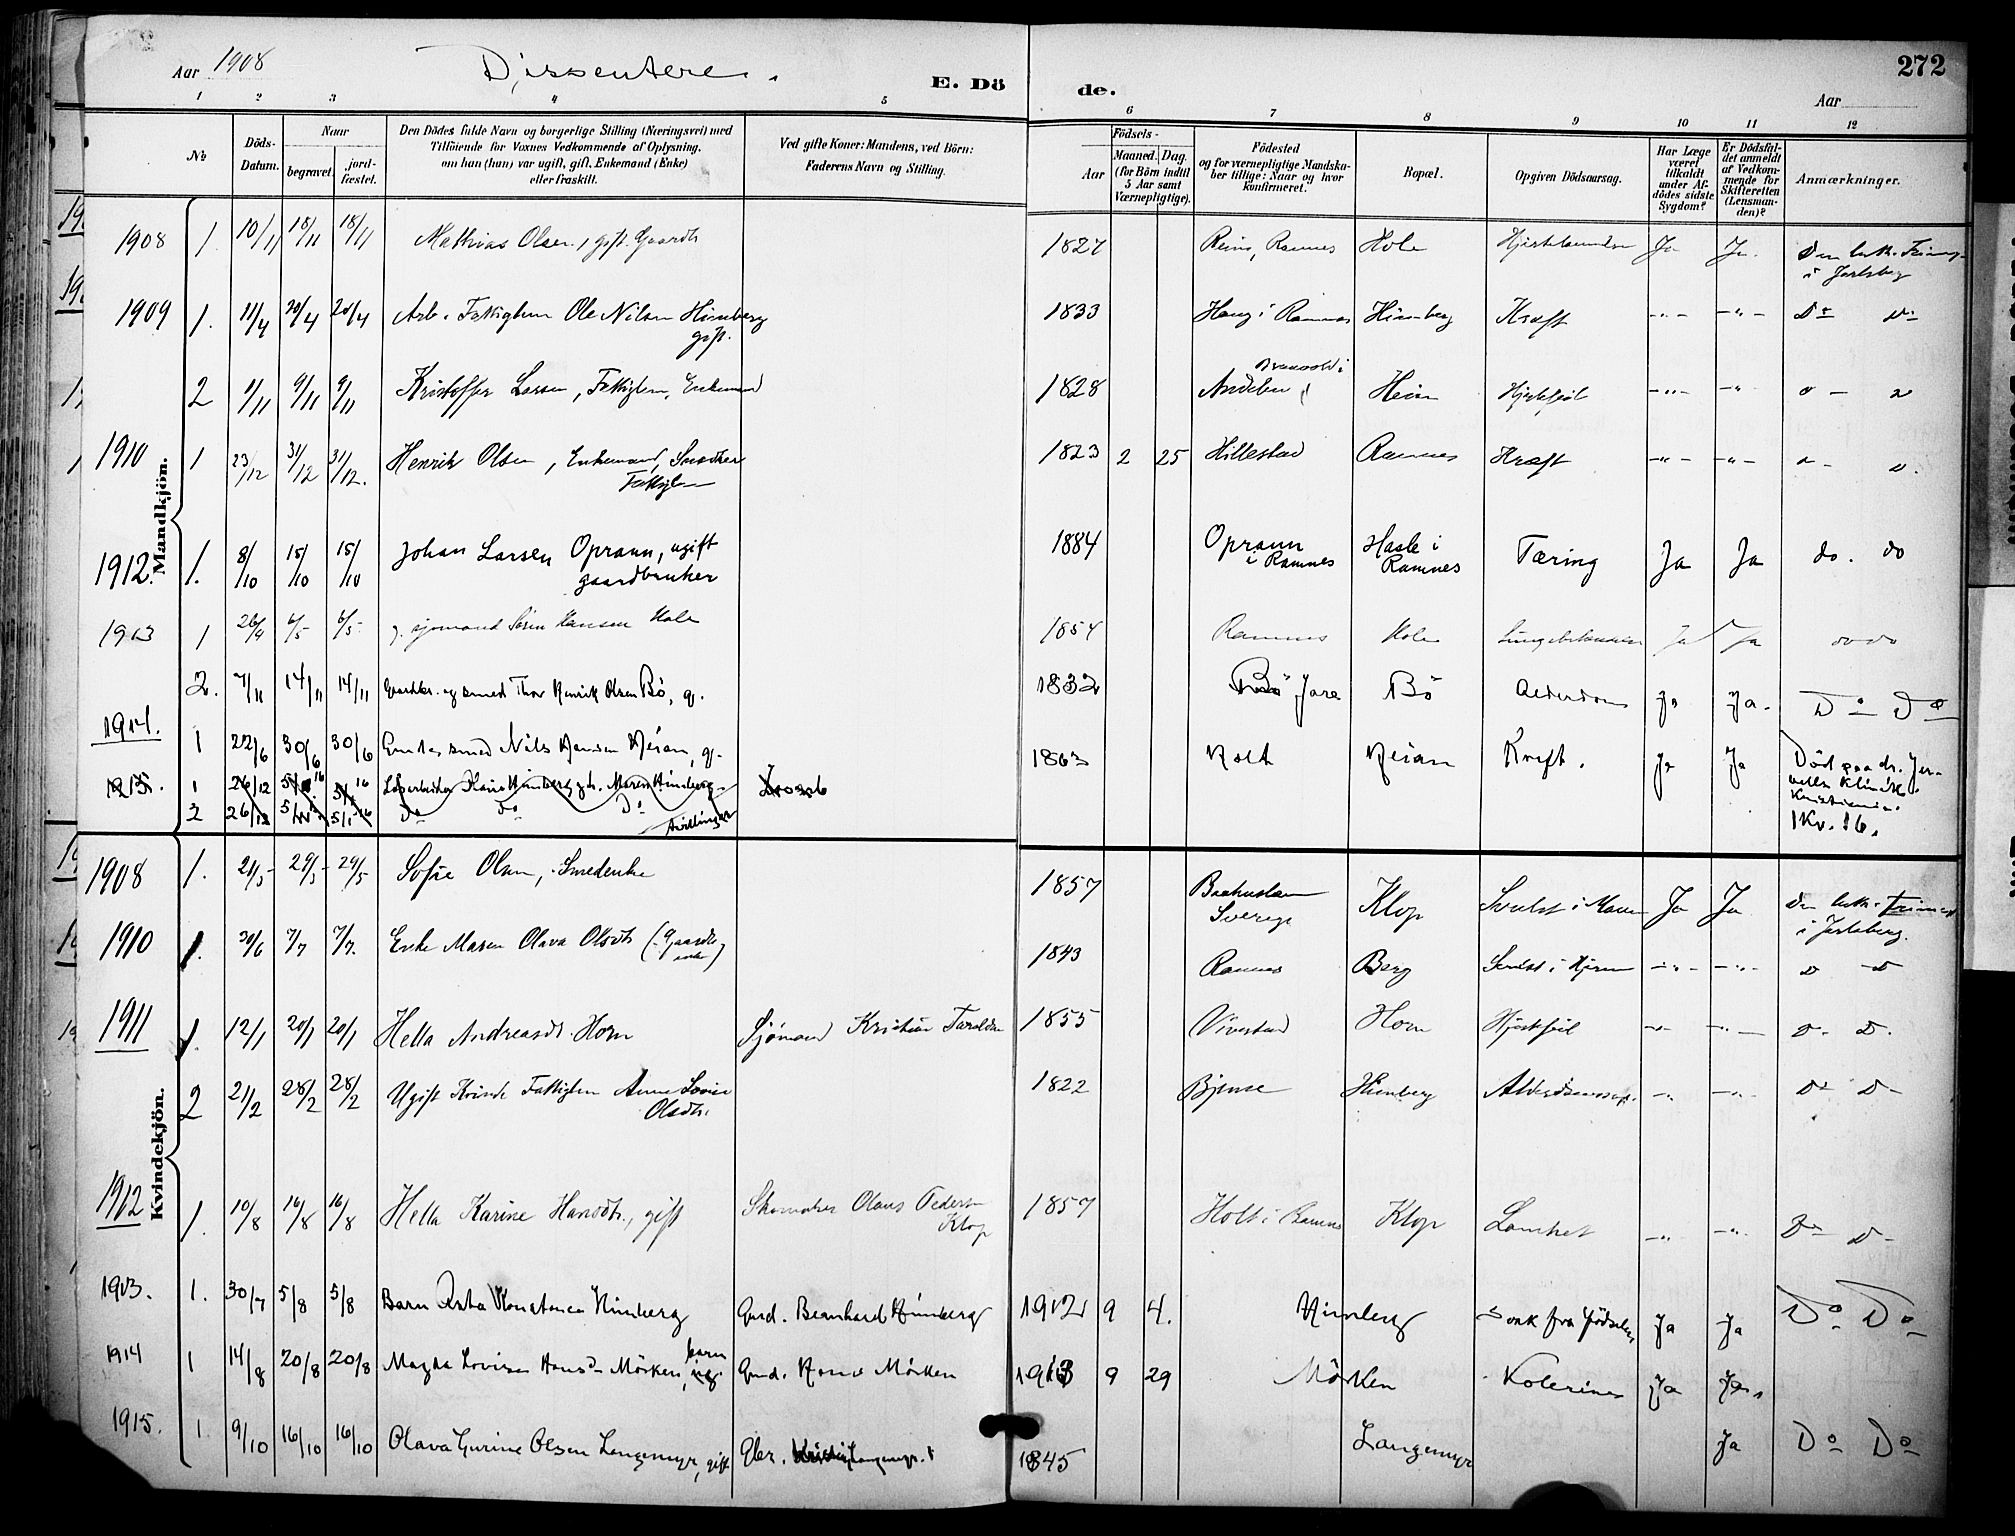 272
Aar 1908 Dissentere. E. Döde. Aar
1 2 3 4 5 6 7 8 9 10 11 12
No
Döds-Datum.
Naar
begravet.
jord-fæstet.
Den Dödes fulde Navn og borgerlige Stilling (Næringsvei) med
Tilföiende for Voxnes Vedkommende af Oplysning,
om han (hun) var ugift, gift, Enkemand (Enke)
eller fraskilt.
Ved gifte Koner: Mandens, ved Börn:
Faderens Navn og Stilling.
Födsels-
Aar
Maaned. Dag.
(for Börn indtil
5 Aar samt
Værnepligtige).
Födested
og for værnepligtige Mandska-
ber tillige: Naar og hvor
konfirmeret.
Bopæl.
Opgiven Dödsaarsag.
Har Læge
været
tilkaldt
under Af-
dödes sidste
Sygdom?
Er Dödsfal-
det anmeldt
af Vedkom-
mende for
Skifteretten
(Lensman-
den)?
Anmærkninger.
Mandkjön.
1908 1. 10/11 18/11 18/11 Mathias Olsen, gift. Gaardbr 1827 Ramnes Hole Ja Ja Den luth. Frimenig
i Jarlsberg
1909 1. 11/4 20/4 20/4 Arb. Fattiglem Ole Nilsen Himberg
gift. 1833 Haug i Ramnes Himberg Kræft -"- -"- Do Do
2 1/11 9/11 9/11 Kristoffer Larsen, Fattiglem, Enkemand 1828 Andebu Heian Hjertefeil -"- -"-
1910 1 23/12 31/12 31/12. Henrik Olsen, Enkemand, Snedker
Fattiglem 1823 2 25 Hillestad Ramnes Kræft -"- -"-
1912. 1. 8/10 15/10 15/10 Johan Larsen Opraun, ugift
gaardbruker 1884 Opraun
i Ramnes Hasle i
Ramnes Tæring Ja Ja do. do
1913 1 26/4 6/5 6/5 g. sjømand Søren Hansen Hole 1854 Ramnes Hole Ja Ja do do
2. 7/11 14/11 14/11 Gaardbr. og smed Thor Henrik Olsen Bö, g. 1832 Bö Jare Bö Alderdom Ja Ja. Do Do
1914. 1 22/6 30/6 30/6 smed Nils Hansen Heian, g. 1863 Holt Heian Kreft. Ja Ja Död paa dr. Jer-
vells Klinik
Kristiania.
1 Kv. 16.
1915. 1 26/12 5/1 16 5/1 16 Himberg Maren Himberg
2 26/12 5/1 5/1 16 do do Do
tvillinger
Kvindekjön.
1908 1. 21/5 29/5 29/5 Sofie Olsen, Smedenke 1857 Baahuslen
Sverige Klop Svulst i Maven Ja Ja Den luth. Frimenig
i Jarlsberg.
1910 1. 30/6 7/7 7/7. Enke Maren Olava Olsdtr (Gaardbr
enke) 1843 Ramnes Berg Svulst i Hjernen -"- -"-
1911 1. 12/1 20/1 20/1 Hella Andreasdtr. Horn Sjømand Kristian Taraldsen 1855 Vivestad Horn Hjertefeil -"- -"- D. D.
2 21/2 28/2 28/2 Ugift Kvinde Fattiglem Anne Lovise
Olsdtr. 1822 Himberg -"- -"- Do D-
1912 1. 10/8 16/8 16/8 Hella Karine Hansdtr., gift Skomaker Olaus Pedersen
Klop 1857 Holt i Ramnes Klop Lamhet -"- -"- Do D-
1913. 1. 30/7 5/8 5/8 Barn Asta Konstanse Himberg Gmd. Bernhard Himberg 1912 9 4. Himberg svak fra fødselen Ja Ja Do Do
1914 1 14/8 20/8 20/8 Magda Lovisa Hansd. Mörken, barn Gmd. Hans Mörken 1913 9 29 Mörken Kolerine Ja Ja
1915. 1. 9/10 16/10 16/10 Olava Gurine Olsen Langemyr, gift Langemyr. 1845 Langemyr Ja Do Do